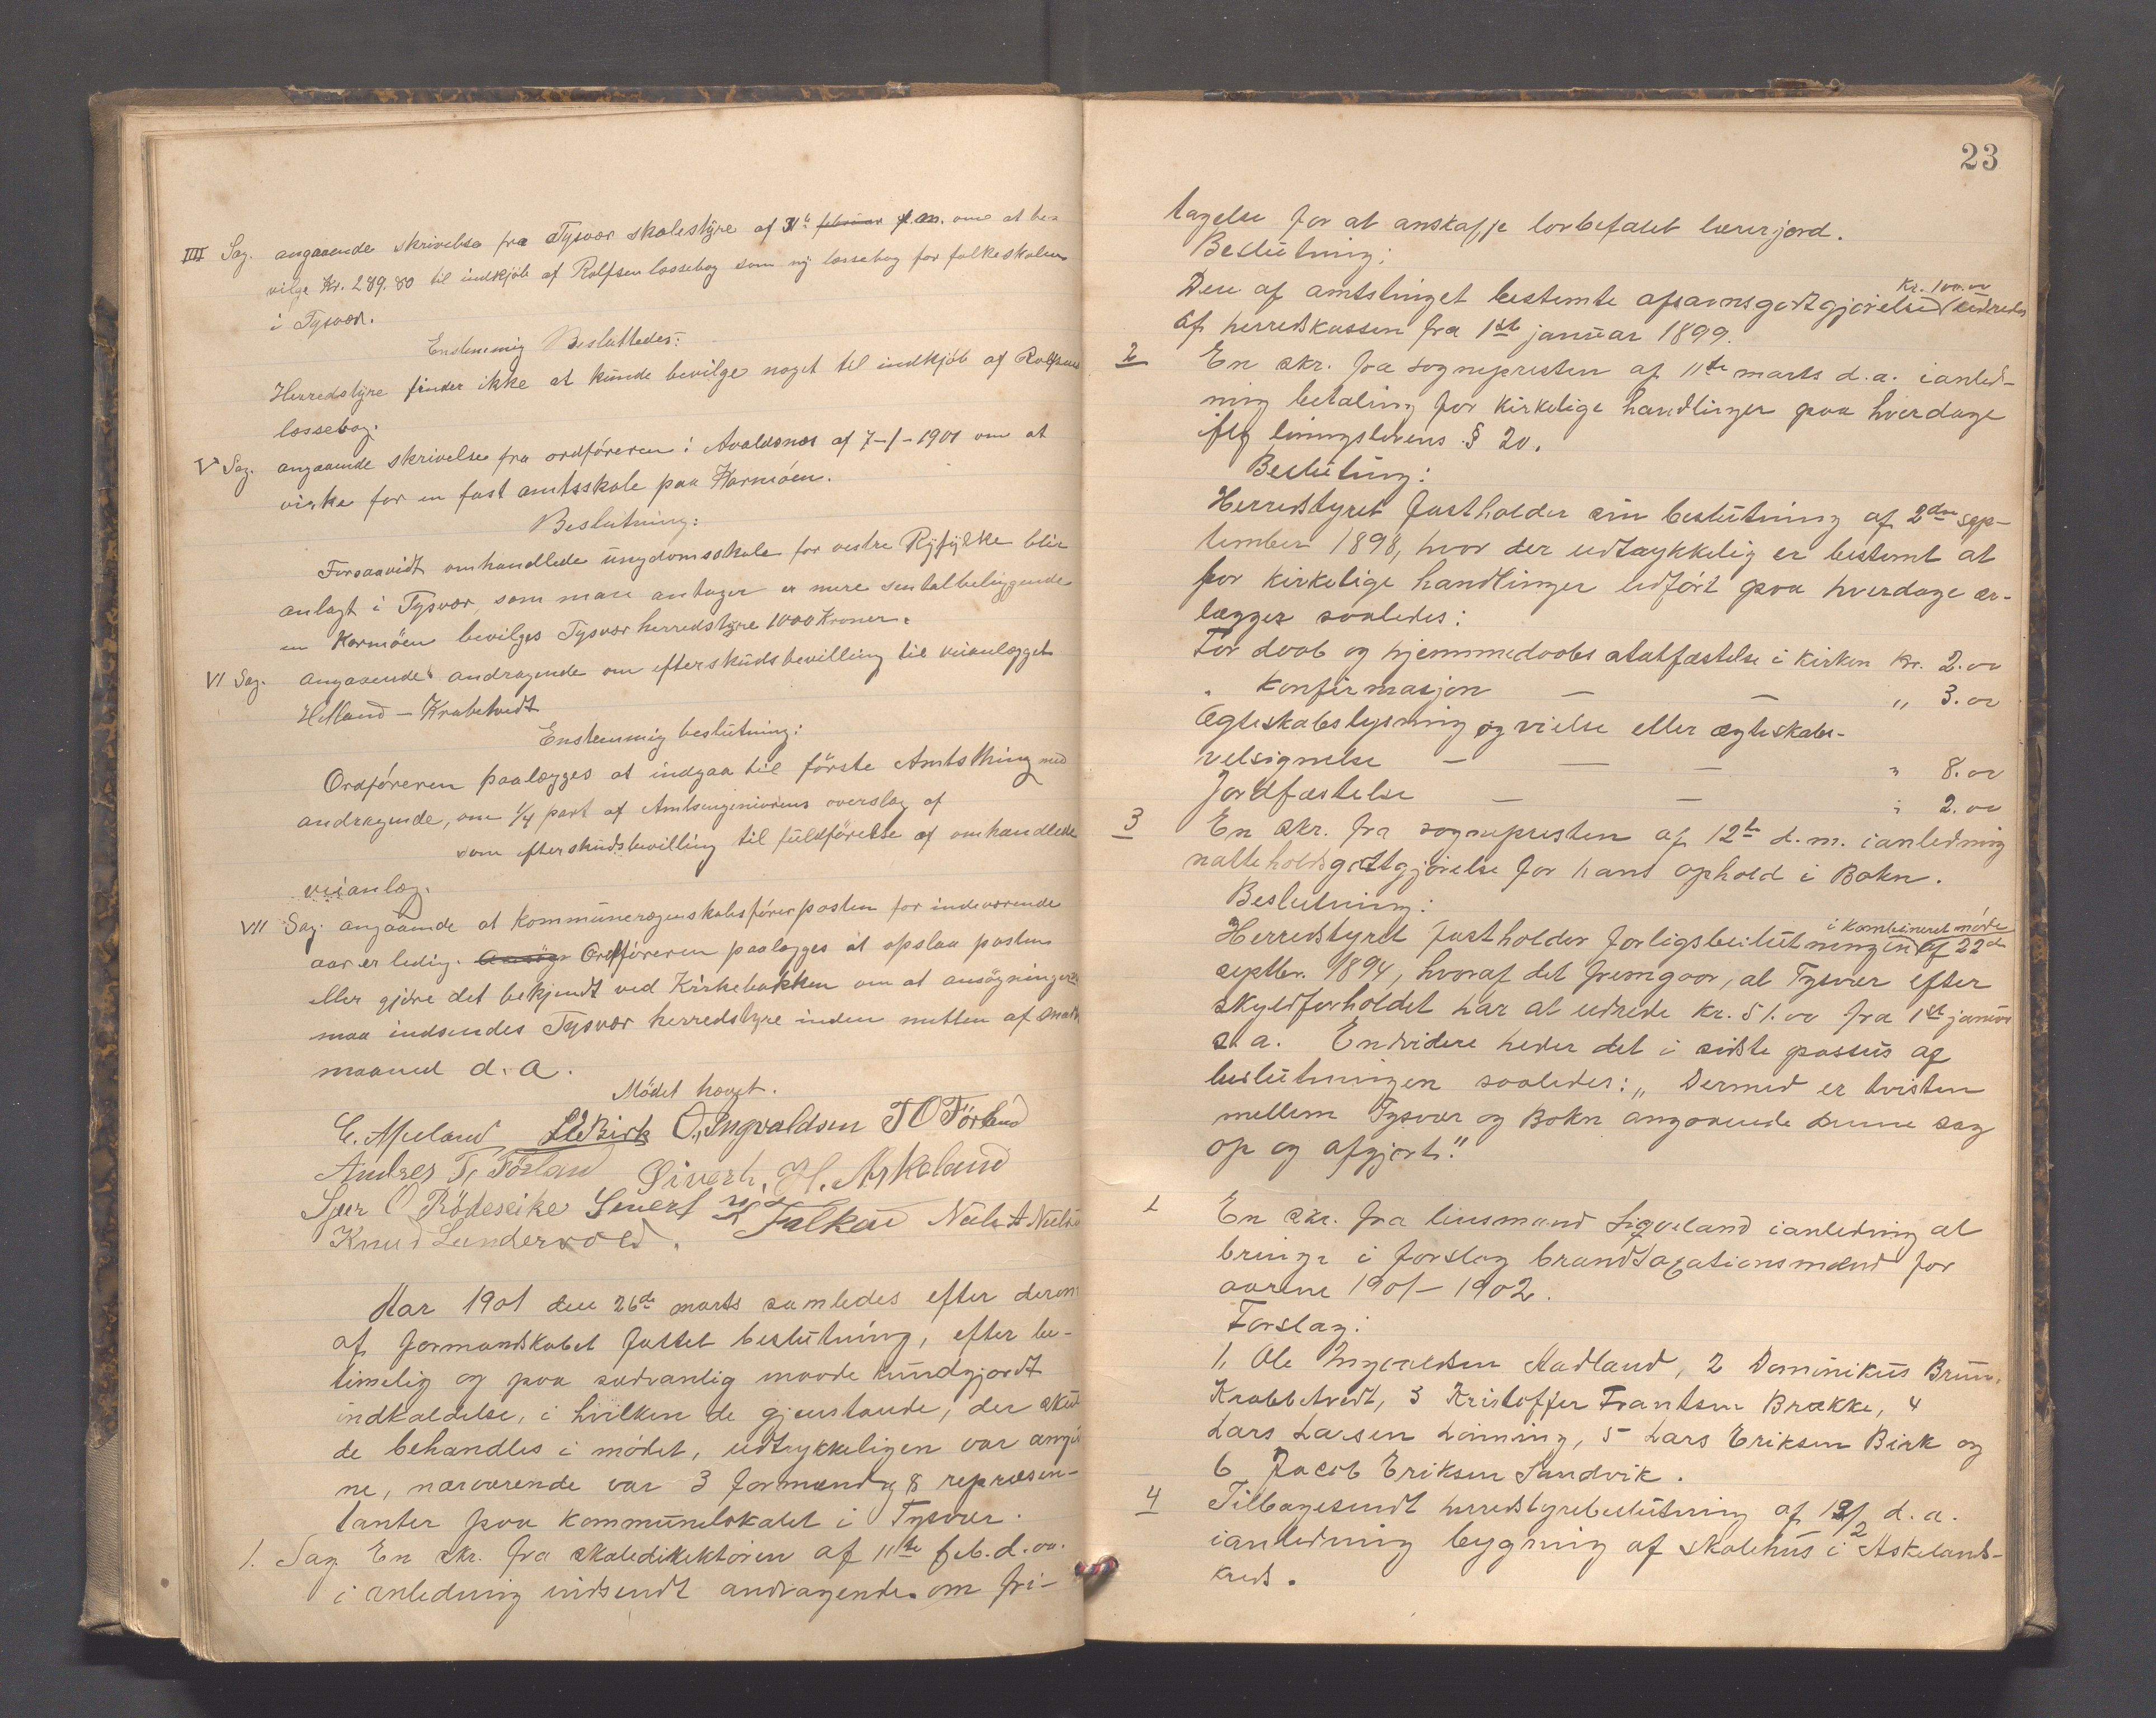 IIII Sag. angaaende skrivelse fra Tysvær skolestyre af f.m. om at be-
vilge Kr. 289.80 til indkjöb af Rolfsen læssebog som ny læssebog for folkeskolen
i Tysvær.
Enstemmig Besluttedes:
Herredstyre finder ikke at kunde bevilge noget til indkjöb af Rolfsens
læssebog.
V Sag. angaaende skrivelse fra ordföreren i Avaldsnæs af 7-1-1901 om at
virke for en fast amtsskole paa Karmöen.
Beslutning:
Forsaavidt omhandlede ungdomsskole for vestre Ryfylke blir
anlagt i Tysvær, som man antager er mere sentalbeliggende
en Karmöen bevilges Tysvær herredstyre 1000 Kroner.
VI Sag. angaaende andragende om efterskudsbevilling til veianlægget
Helland – Krabetvedt
Enstemmig beslutning:
Ordföreren paalægges at indgaa til förste Amtsthing med
andragende, om 1/4 part af Amtsingeniörens overslag af
som efterskudsbevilling til fuldförelse af omhandlede
veianlæg.
VII Sag. angaaende at kommuneregenskabsförerposten for indeværende
aar er ledig. Ordföreren paalægges at opslaa posten
eller gjöre det bekjendt ved Kirkebakken om at ansögninger
maa indsendes Tysvær herredstyre inden mitten af marts
maaned d. a.
Mödet hævet.
E. Apeland L E Birk O. Ingvaldsen T O Förland
Andres T. Förland Sivert H. Askeland
Sjur O Rödeseike Senert Falkeid Nils A Nilsen
Knud Lundervold.
Aar 1901 den 26de marts samledes efter derom
af formandskabet fattet beslutning, efter be-
timelig og paa sædvanlig maade kundgjordt
indkaldelse, i hvilken de gjenstande, der skul-
de behandles i mödet, udtrykkeligen var angiv-
ne, nærværende var 3 formænd og 8 repræsen-
tanter paa kommunelokalet i Tysvær.
1. Sag En skr. fra skoledirektören af 11te feb. d. aa.
i anledning indsendt andragende om fri-
23
tagelse for at anskaffe lovbefalet lærerjord.
Beslutning:
Den af amtstinget bestemte afsavnsgodtgjörelse Kr. 100.00 udredes
af herredskassen fra 1ste januar 1899.
2 En skr. fra sognepresten af 11te marts d.a. ianled-
ning betaling for kirkelige handlinger paa hverdage
iflg lönningslovens § 20.
Beslutning:
Herredstyret fastholder sin beslutning af 2den sep-
tember 1898, hvor der udtrykkelig er bestemt at
for kirkelige handlinger udfört paa hverdage er-
lægges saaledes:
For daab og hjemmedaabs stadfæstelse i kirken kr. 2.00
" konfirmasjon — — " 3.00
Ægteskabslysning og vielse eller ægteskabs-
velsignelse — — — " 8.00
Jordfæstelse — — " 2.00
3 En skr. fra sognepresten af 12te d.m. ianledning
natteholdsgodtgjörelse for hans ophold i Bokn.
Beslutning:
Herredstyret fastholder forligsbeslutningen i kombineret möde af 22de
septbr. 1894, hvoraf det fremgaar, at Tysvær efter
skyldforholdet har at udrede kr. 51.00 fra 1ste januar
s.a. Endvidere heder det i sidste passus af
beslutningen saaledes: „Dermed er tvisten
mellem Tysvær og Bokn angaaende denne sag
op og afgjort."
En skr. fra lensmand Liqveland ianledning at
bringe i forslag brandtaxationsmænd for
aarene 1901–1902.
Forslag:
1, Ole Ingvaldsen Aadland, 2 Dominikus Brun,
Krabbetvedt, 3 Kristoffer Frantsen Brække, 4
Lars Larsen Lönning, 5 Lars Eriksen Birk og
6 Jacob Eriksen Sandvik.
4 Tilbagesendt herredstyrebeslutning af d.a.
ianledning bygning af skolehus i Askelands-
kreds.